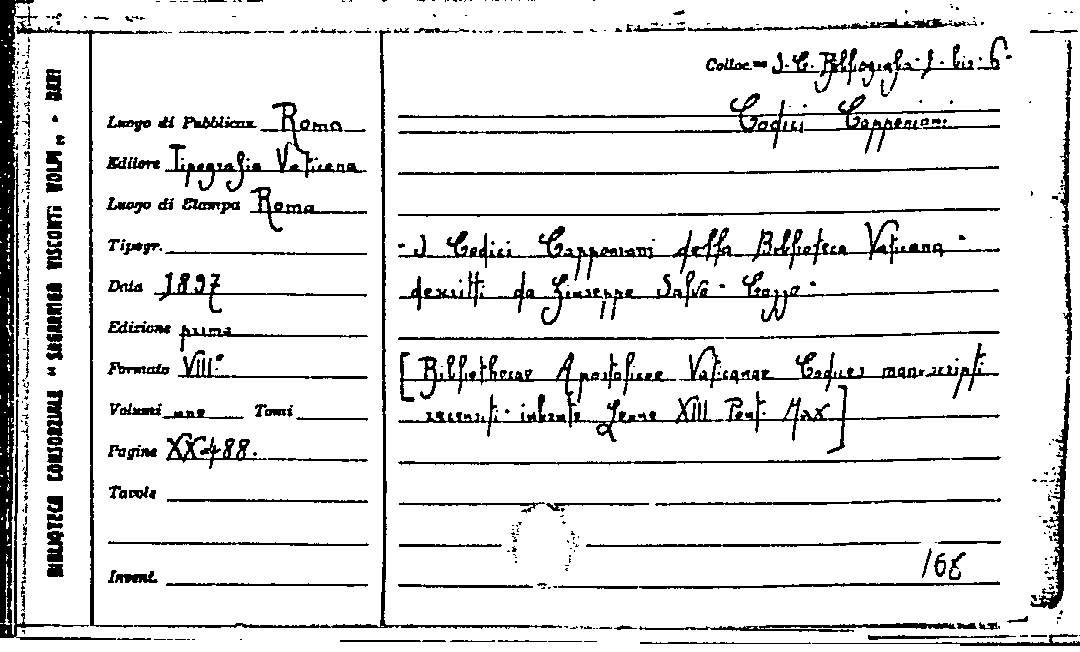 BIBLIOTECA CONSORZIALE "SAGARRIGA VISCONTI VOLPI" - BARI
Colloc.ne I. C. Bibliografia. I. bis. 6.
Codici Capponiani
Luogo di Pubblicaz. Roma
Editore Tipografia Vaticana
Luogo di Stampa Roma
Tipogr.
Data 1897
Edizione prima
Formato VIII°
Volumi uno Tomi
Pagine XX-488.
Tavole
Invent.
- I Codici Capponiani della Biblioteca Vaticana -
descritti da Giuseppe Salvo - Cozzo -
[Bibliothecae Apostolicae Vaticanae Codices manuscripti
recensiti - iubente Leone XIII Pont. Max]
168